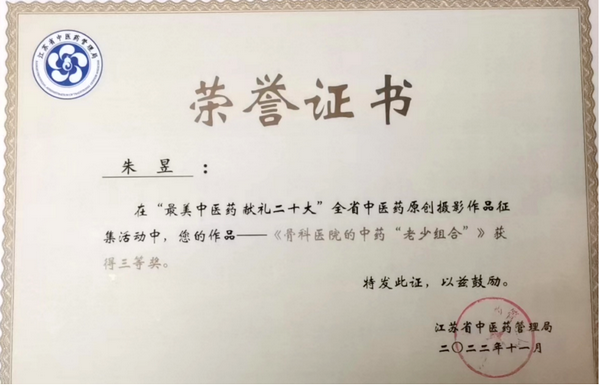 江苏省中医药管理局
荣誉证书
朱昱：
在“最美中医药献礼二十大”全省中医药原创摄影作品征
集活动中，您的作品——《骨科医院的中药“老少组合”》获
得三等奖。
特发此证，以兹鼓励。
江苏省中医药管理局
二〇二二年十一月